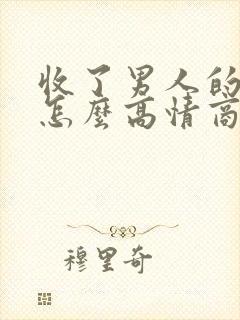 收了男人的
怎麼高情商
穆里奇